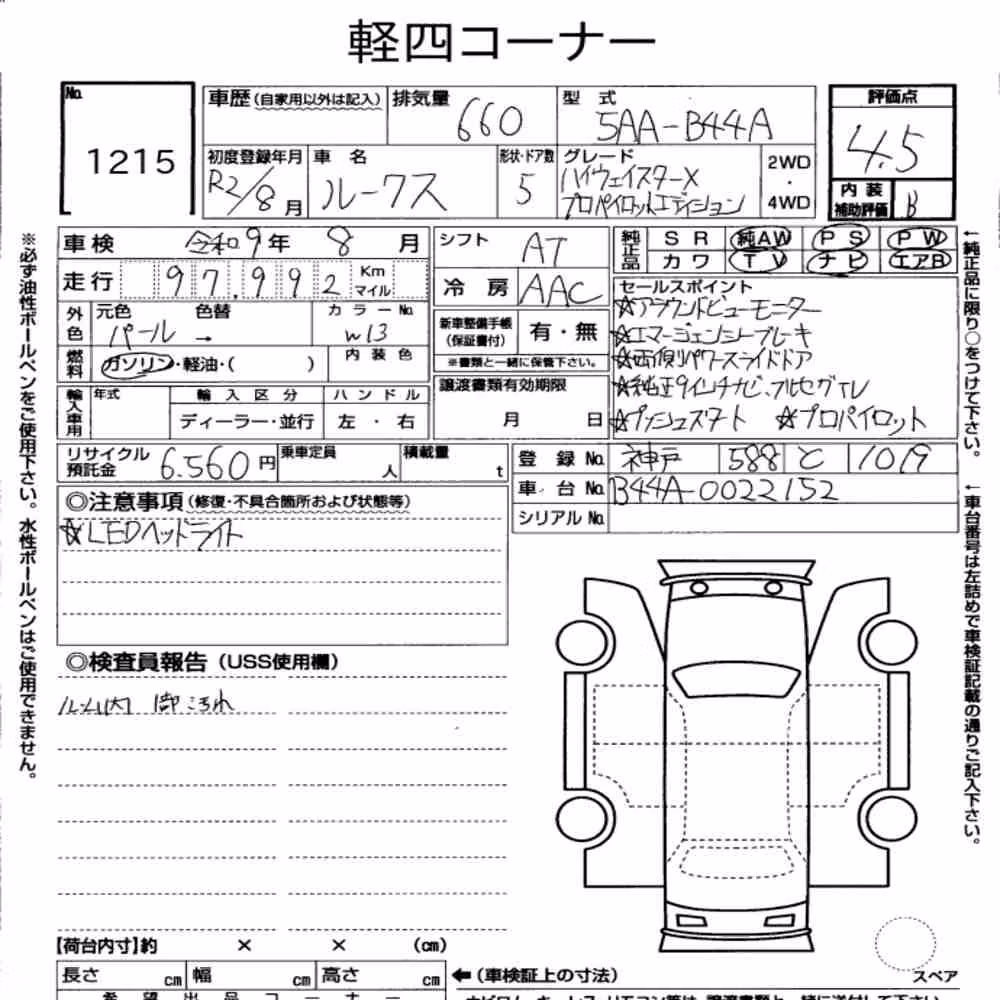 軽四コーナー
No. 1215
車歴(自家用以外は記入) 排気量 660 型式 5AA-B44A
初度登録年月 R2/8月 車名 ルークス 形状・ドア数 5 グレード ハイウェイスターX プロパイロットエディション 2WD・4WD
評価点 4.5
内装補助評価 B
車検 令和9年 8月
走行 97,992 Km マイル
シフト AT
冷房 AAC
純正品 SR 純AW PS PW
カワ TV ナビ エアB
外色 元色 パール → 色替 カラーNo. W13
燃料 ガソリン・軽油・( ) 内装色
新車整備手帳(保証書付) 有・無
※書類と一緒に保管下さい。
輸入車用 年式 輸入区分 ディーラー・並行 ハンドル 左・右
譲渡書類有効期限 月 日
セールスポイント
☆アラウンドビューモニター
☆エマージェンシーブレーキ
☆両側パワースライドドア
☆純正9インチナビ.フルセグTV
☆プッシュスタート ☆プロパイロット
リサイクル預託金 6.560円 乗車定員 人 積載量 t
登録No. 神戸 588 と 1019
車台No. B44A-0022152
シリアルNo.
◎注意事項(修復・不具合箇所および状態等)
☆LEDヘッドライト
◎検査員報告(USS使用欄)
ルーム内
汚れ
【荷台内寸】約 × × (cm)
長さ cm 幅 cm 高さ cm
←(車検証上の寸法)
スペア
希望出品コーナー
※必ず油性ボールペンをご使用下さい。水性ボールペンはご使用できません。
←純正品に限り○をつけて下さい。
←車台番号は左詰めで車検証記載の通りご記入下さい。